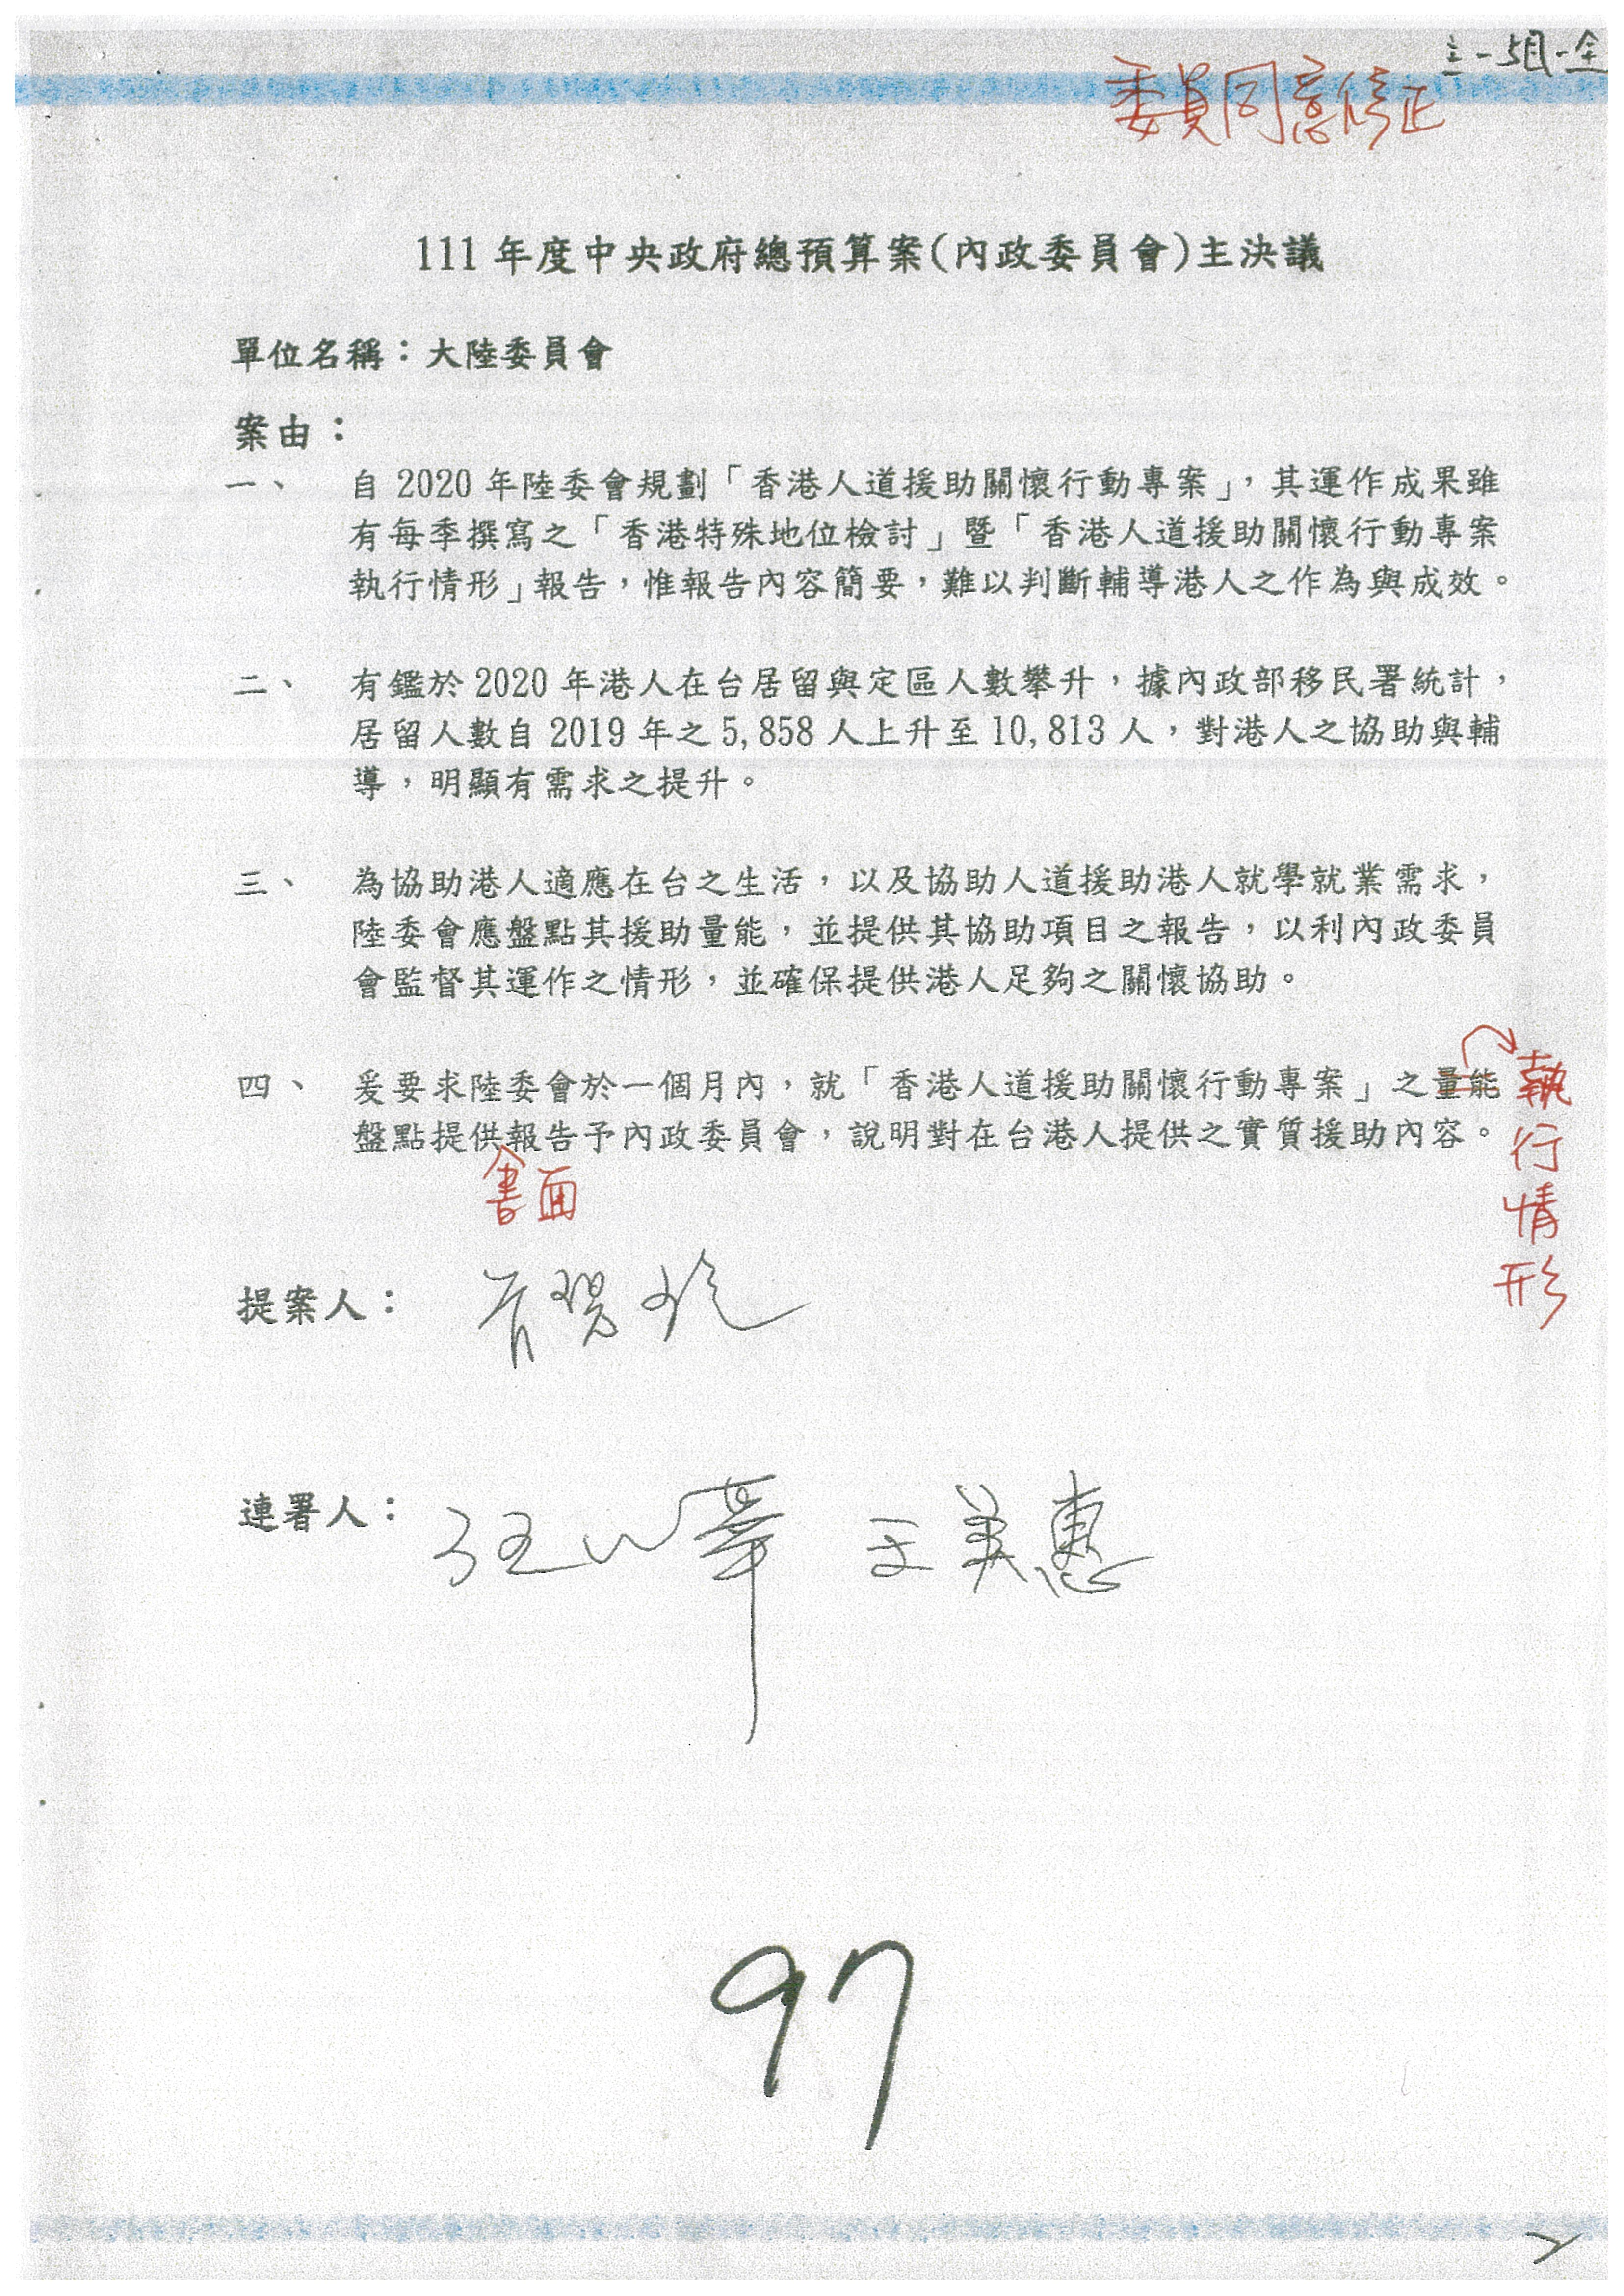 委員同意修正
111年度中央政府總預算案(內政委員會)主決議
單位名稱：大陸委員會
案由：
一、 自2020年陸委會規劃「香港人道援助關懷行動專案」，其運作成果雖
有每季撰寫之「香港特殊地位檢討」暨「香港人道援助關懷行動專案
執行情形」報告，惟報告內容簡要，難以判斷輔導港人之作為與成效。
二、 有鑑於2020年港人在台居留與定區人數攀升，據內政部移民署統計，
居留人數自2019年之5,858人上升至10,813人，對港人之協助與輔
導，明顯有需求之提升。
三、 為協助港人適應在台之生活，以及協助人道援助港人就學就業需求，
陸委會應盤點其援助量能，並提供其協助項目之報告，以利內政委員
會監督其運作之情形，並確保提供港人足夠之關懷協助。
四、 爰要求陸委會於一個月內，就「香港人道援助關懷行動專案」之量能
執行情形
盤點提供報告予內政委員會，說明對在台港人提供之實質援助內容。
書面
提案人：
連署人： 王美惠
97